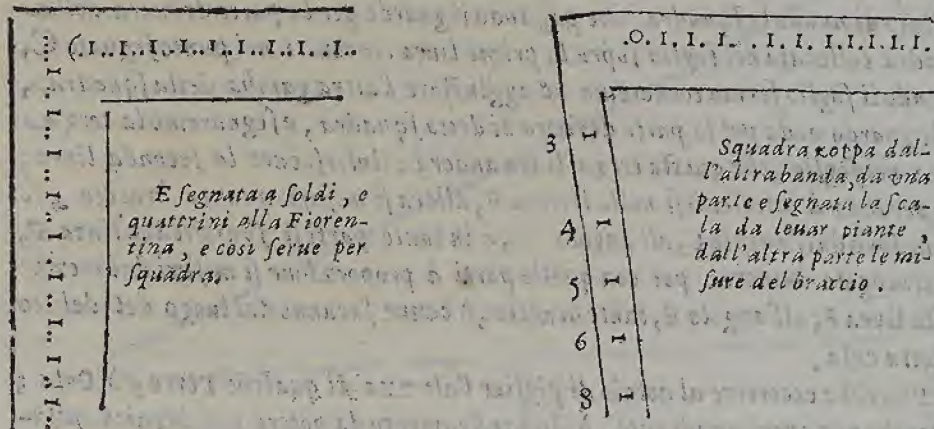 (I..I..I..I..I..I..I..I..I..
E segnata a soldi, e
quattrini alla Fioren-
tina, e così serue per
squadra.
.O. I. I. I.. . I. I. I.I.I.I.I.
3 I
4 I
5 I
6 I
8 I
Squadra rotpa dal-
l'altra banda, da vna
parte e segnata la sca-
la da leuar piante,
dall'altra parte le mi-
sure del braccio.